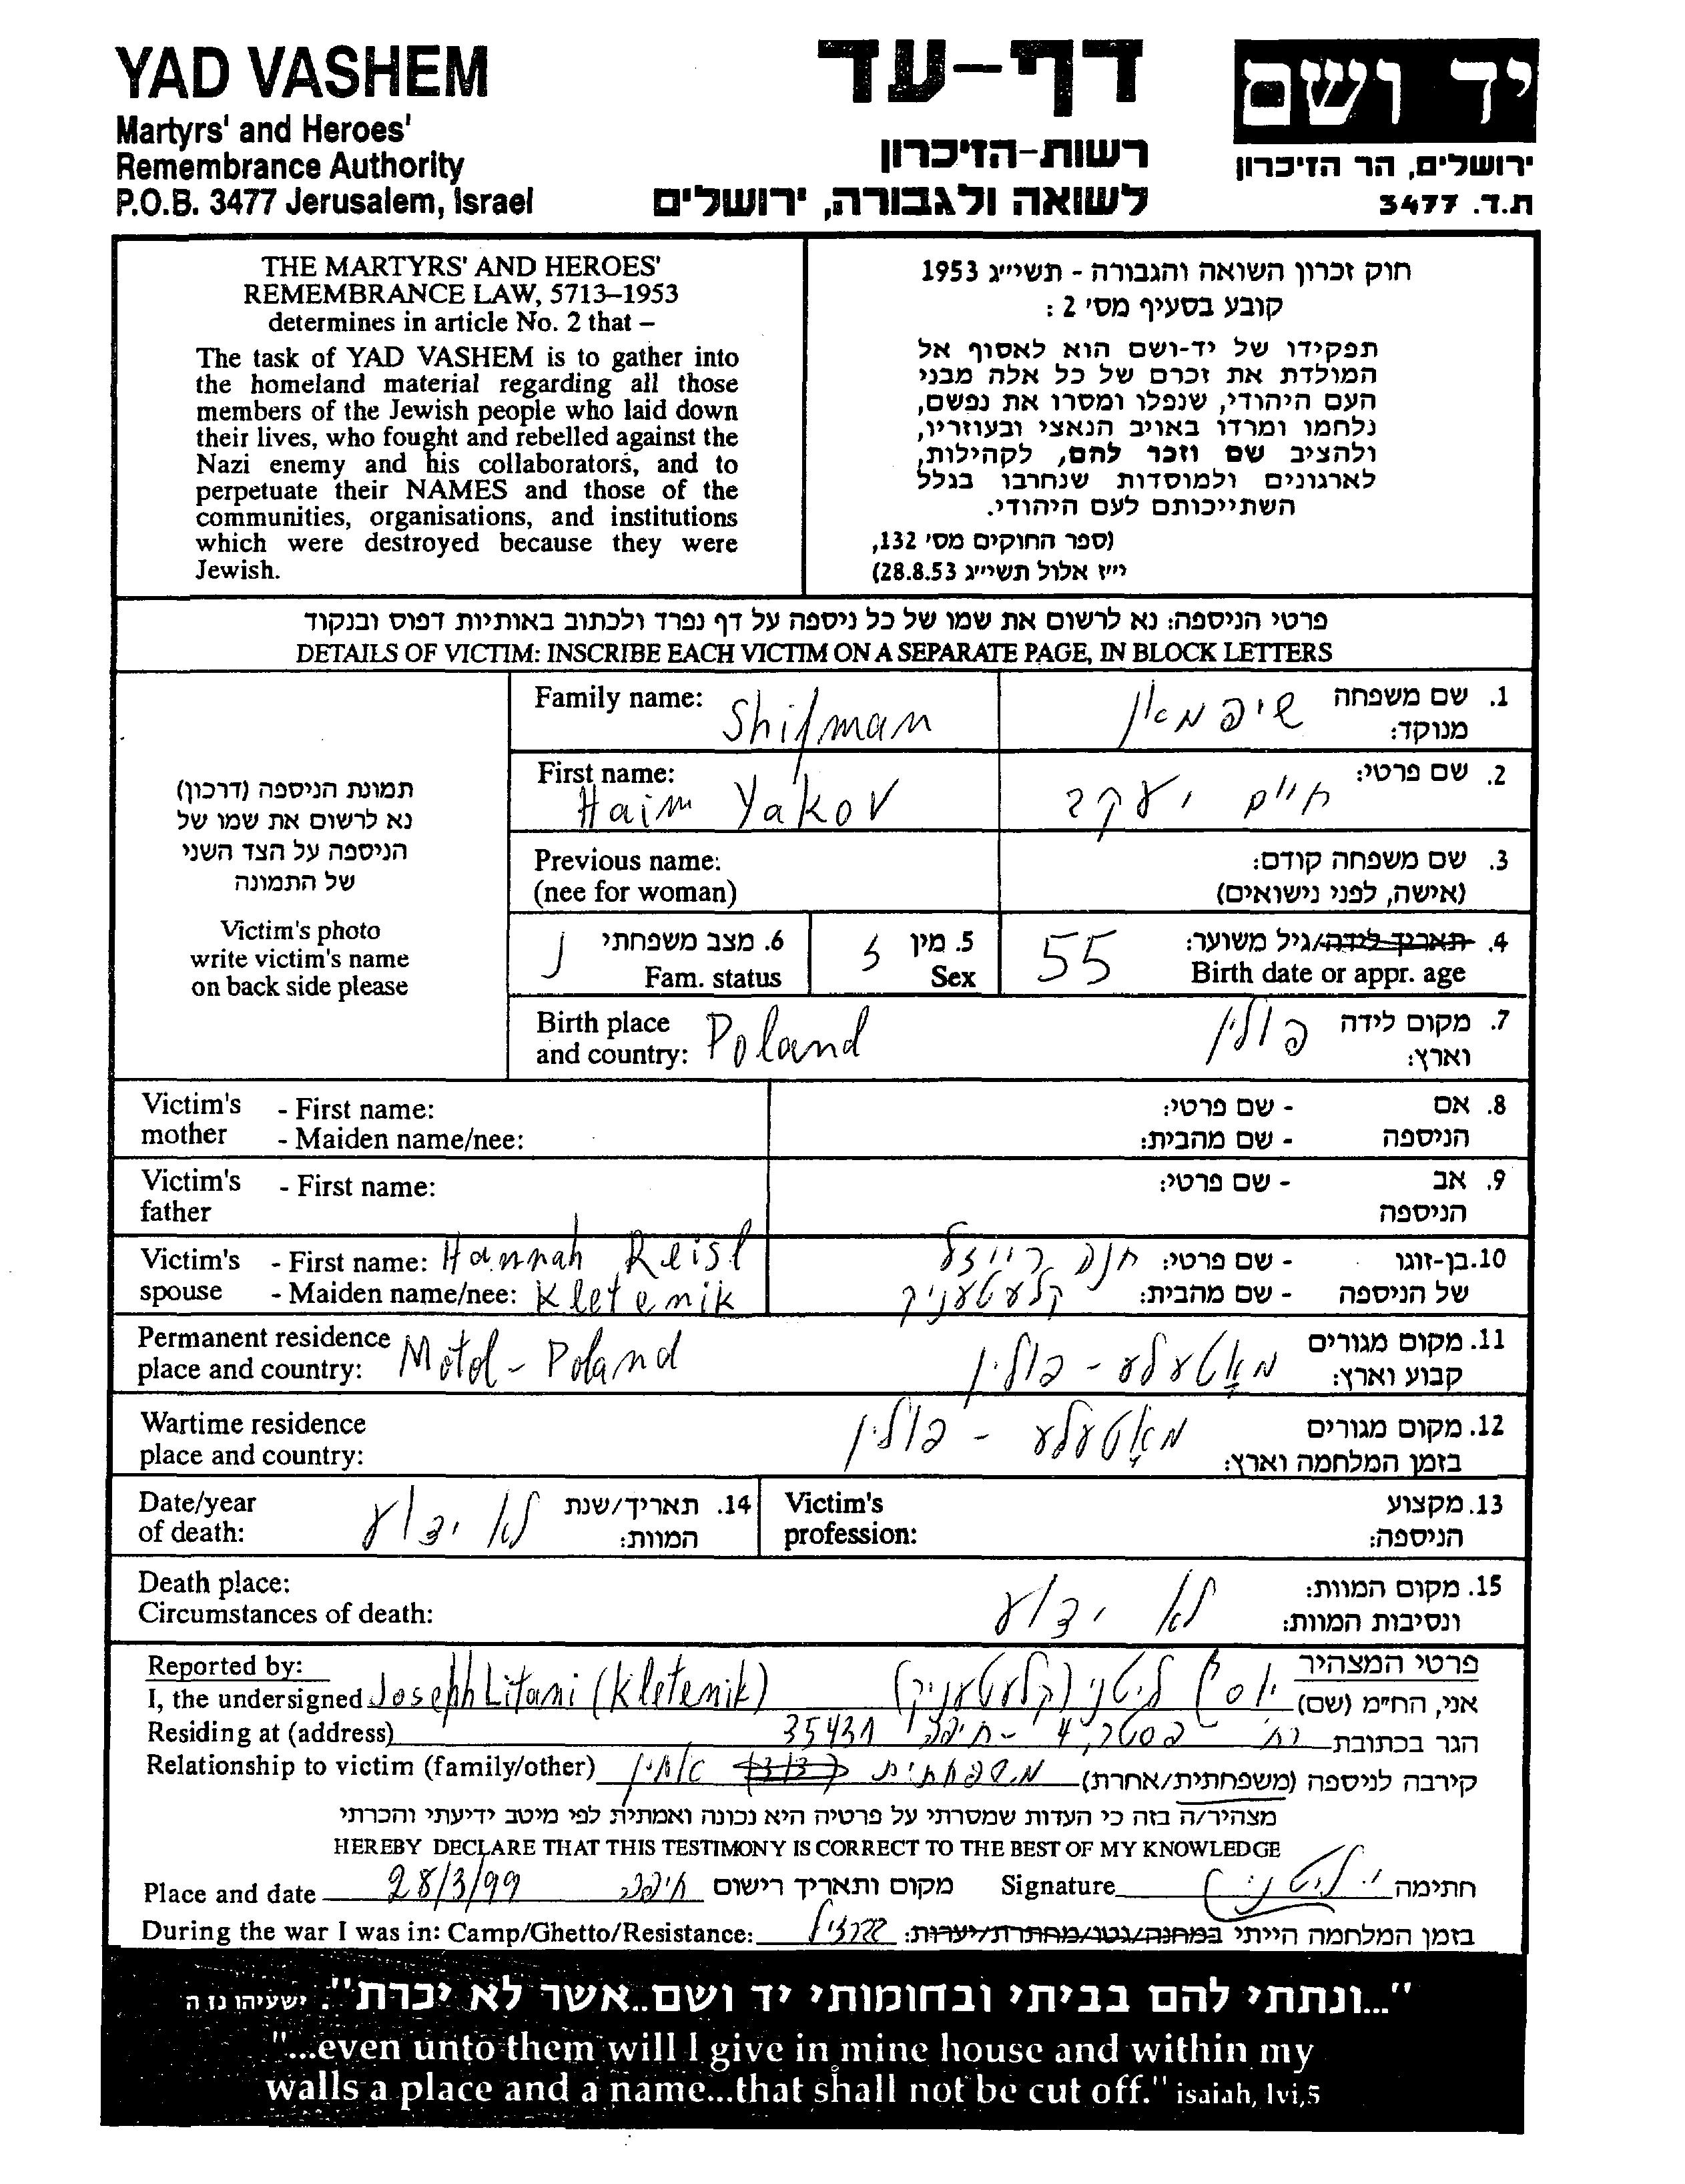 YAD VASHEM
Martyrs' and Heroes'
Remembrance Authority
P.O.B. 3477 Jerusalem, Israel
דף-עד
רשות-הזיכרון
לשואה ולגבורה, ירושלים
יד ושם
ירושלים, הר הזיכרון
ת.ד. 3477
THE MARTYRS' AND HEROES'
REMEMBRANCE LAW, 5713–1953
determines in article No. 2 that –
The task of YAD VASHEM is to gather into
the homeland material regarding all those
members of the Jewish people who laid down
their lives, who fought and rebelled against the
Nazi enemy and his collaborators, and to
perpetuate their NAMES and those of the
communities, organisations, and institutions
which were destroyed because they were
Jewish.
חוק זכרון השואה והגבורה - תשי״ג 1953
קובע בסעיף מס' 2 :
תפקידו של יד-ושם הוא לאסוף אל
המולדת את זכרם של כל אלה מבני
העם היהודי, שנפלו ומסרו את נפשם,
נלחמו ומרדו באויב הנאצי ובעוזריו,
ולהציב שם וזכר להם, לקהילות,
לארגונים ולמוסדות שנחרבו בגלל
השתייכותם לעם היהודי.
(ספר החוקים מס' 132,
י״ז אלול תשי״ג 28.8.53)
פרטי הניספה: נא לרשום את שמו של כל ניספה על דף נפרד ולכתוב באותיות דפוס ובנקוד
DETAILS OF VICTIM: INSCRIBE EACH VICTIM ON A SEPARATE PAGE, IN BLOCK LETTERS
תמונת הניספה (דרכון)
נא לרשום את שמו של
הניספה על הצד השני
של התמונה
Victim's photo
write victim's name
on back side please
Family name: Shifman
1. שם משפחה שיפמאן
מנוקד:
First name:
Haim Yakov
2. שם פרטי: חיים יעקב
Previous name:
(nee for woman)
3. שם משפחה קודם:
(אישה, לפני נישואים)
6. מצב משפחתי נ
Fam. status
5. מין ז
Sex
4. תאריך לידה/גיל משוער: 55
Birth date or appr. age
Birth place
and country: Poland
7. מקום לידה פולין
וארץ:
Victim's - First name:
mother - Maiden name/nee:
8. אם - שם פרטי:
הניספה - שם מהבית:
Victim's - First name:
father
9. אב - שם פרטי:
הניספה
Victim's - First name: Hannah Reisl
spouse - Maiden name/nee: Kletenik
10. בן-זוגו - שם פרטי: חנה רייזל
של הניספה - שם מהבית: קלעטעניק
Permanent residence
place and country: Motol - Poland
11. מקום מגורים מאָטעלע - פולין
קבוע וארץ:
Wartime residence
place and country:
12. מקום מגורים מאָטעלע - פולין
בזמן המלחמה וארץ:
Date/year
of death:
14. תאריך/שנת לא ידוע
המוות:
Victim's
profession:
13. מקצוע
הניספה:
Death place:
Circumstances of death:
15. מקום המוות: לא ידוע
ונסיבות המוות:
Reported by:
פרטי המצהיר
I, the undersigned Joseph Litani (Kletenik)
אני, הח״מ (שם) יוסף ליטני (קלעטעניק)
Residing at (address)
הגר בכתובת רח' פסטר 4, חיפה 35431
Relationship to victim (family/other)
קירבה לניספה (משפחתית/אחרת) משפחתית אחיין
מצהיר/ה בזה כי העדות שמסרתי על פרטיה היא נכונה ואמתית לפי מיטב ידיעתי והכרתי
HEREBY DECLARE THAT THIS TESTIMONY IS CORRECT TO THE BEST OF MY KNOWLEDGE
Place and date 28/3/99 חיפה מקום ותאריך רישום
Signature י. ליטני חתימה
During the war I was in: Camp/Ghetto/Resistance:
בזמן המלחמה הייתי במחנה/גטו/מחתרת/יערות:
"...ונתתי להם בביתי ובחומותי יד ושם..אשר לא יכרת". ישעיהו נו ה
"...even unto them will I give in mine house and within my
walls a place and a name...that shall not be cut off." isaiah, lvi,5